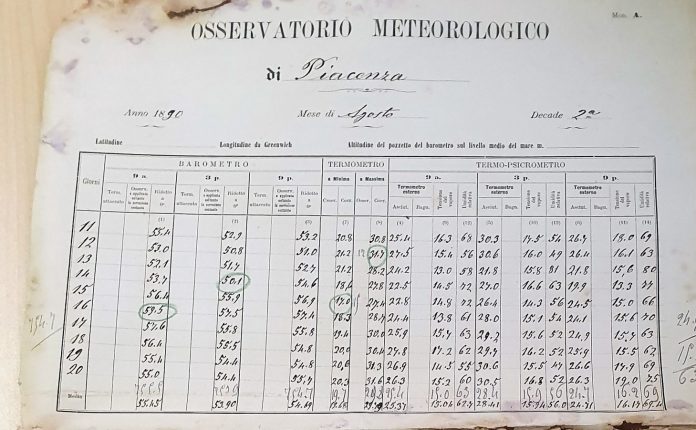 Mod. A.
OSSERVATORIO METEOROLOGICO
di Piacenza
Anno 1890 Mese di Agosto Decade 2a
Latitudine Longitudine da Greenwich Altitudine del pozzetto del barometro sul livello medio del mare m.
Giorni BAROMETRO TERMOMETRO TERMO-PSICROMETRO
9 a. 3 p. 9 p. a Minima a Massima 9 a. 3 p. 9 p.
Term. attaccato Ridotto a 0° Term. attaccato Ridotto a 0° Term. attaccato Ridotto a 0° Osser. Corr. Osser. Corr. Termometro esterno Tensione del vapore Umidità relativa Termometro esterno Tensione del vapore Umidità relativa Termometro esterno Tensione del vapore Umidità relativa
Asciut. Bagn. Asciut. Bagn. Asciut. Bagn.
(1) (2) (3) (7) (8) (4) (9) (12) (5) (10) (13) (6) (11) (14)
11 55.4 52.9 53.2 20.8 30.8 25.4 16.3 68 30.3 17.5 54 26.7 18.0 69
12 53.0 50.8 51.0 21.2 31.7 27.5 15.4 56 30.6 16.0 49 26.4 16.1 63
13 52.1 51.7 52.7 21.2 28.2 24.2 13.0 58 21.8 15.8 81 21.8 15.6 80
14 53.7 50.1 54.6 18.4 27.8 22.5 14.5 72 27.0 16.6 63 19.9 13.3 77
15 56.4 55.9 56.9 17.0 27.4 22.8 14.8 72 26.4 14.3 56 24.5 15.0 66
16 59.5 57.5 57.4 18.3 28.7 24.4 13.8 61 28.0 15.1 54 24.1 15.6 70
17 57.6 55.8 55.8 19.4 30.0 25.9 15.7 63 29.2 15.6 52 24.9 15.7 63
18 56.4 55.5 54.8 20.0 30.4 27.8 17.2 62 29.7 16.2 52 25.9 15.5 62
19 55.4 54.4 54.8 20.6 31.3 26.9 14.5 55 30.6 15.5 47 26.6 17.9 69
20 55.0 54.4 55.7 20.3 31.6 26.3 15.2 60 30.5 16.8 52 26.3 19.0 75
Medie 55.45 53.90 54.69 25.37 15.04 62.7 28.41 56.0 24.71 16.17
754.7